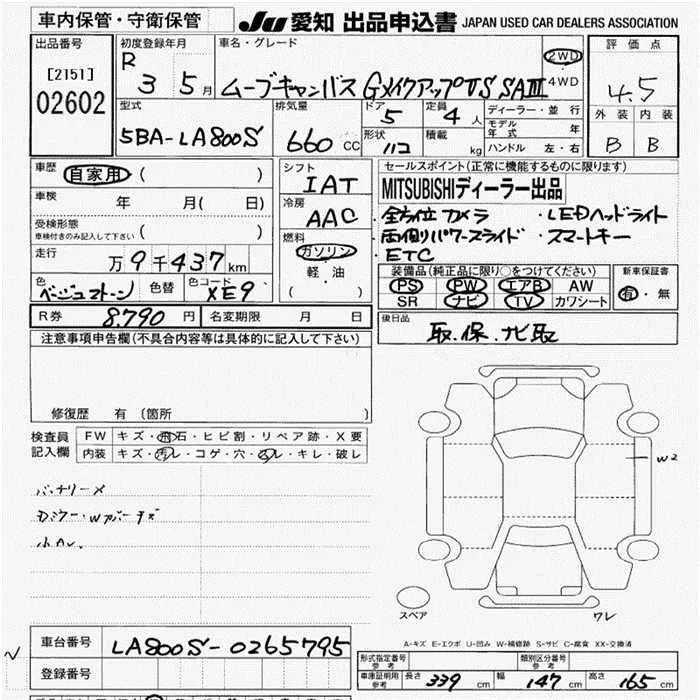 車内保管・守衛保管
JU 愛知 出品申込書 JAPAN USED CAR DEALERS ASSOCIATION
出品番号
[2151]
02602
初度登録年月
R 3 5月
車名・グレード
ムーブキャンバス GメイクアップVS SAⅢ
2WD
4WD
評価点
4.5
外装 内装
B B
型式
5BA-LA800S
排気量
660 CC
ドア 5
定員 4人
形状
積載 kg
ディーラー・並行
モデル年式 年
ハンドル 左・右
車歴 自家用 ( )
車検 年 月( 日)
受検形態
車検付きのみ記入して下さい ( )
走行 万9千437km
色 ベージュ
色替
色コード XE9
シフト
IAT
冷房
AAC
燃料
ガソリン
軽・油
( )
セールスポイント(正常に機能するものに限ります)
MITSUBISHIディーラー出品
・全方位カメラ ・LEDヘッドライト
・両側パワースライド ・スマートキー
・ETC
装備品(純正品に限り○をつけてください)
PS PW エアB AW
SR ナビ TV カワシート
新車保証書
有・無
R券 8,790円
名変期限 月 日
後日品
取.保.ナビ取
注意事項申告欄(不具合内容等は具体的に記入して下さい)
修復歴 有 (箇所 )
検査員記入欄
FW キズ・飛石・ヒビ割・リペア跡・X要
内装 キズ・汚レ・コゲ・穴・スレ・キレ・破レ
バッテリーメ
小A
W2
スペア
ワレ
A-キズ E-エクボ U-凹み W-補修跡 S-サビ C-腐食 XX-交換済
車台番号 LA800S-0265795
登録番号
形式指定番号参考
類別区分番号参考
車庫証明用参考 長さ 339cm 幅 147cm 高さ 165cm